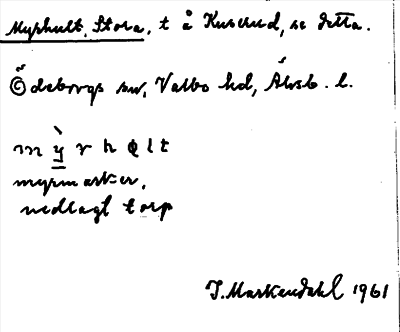 Myrhult, Stora, t å Kuserud, se detta.
Ödeborgs sn, Valbo hd, Älvsb. l.
m ỳ r h ə l t
myrmarker,
nedlagt torp
T. Markendahl 1961